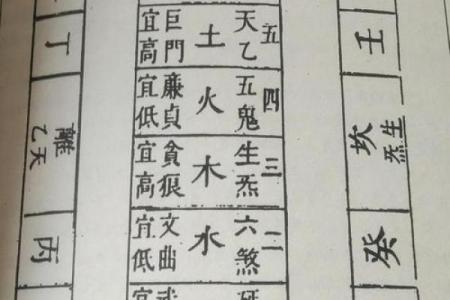 壬
坎
生炁
癸
五
天乙
土
巨門
宜高
四
五鬼
火
廉貞
宜低
三
生炁
木
貪狼
宜高
二
六煞
水
文曲
宜低
丁
離
天乙
丙